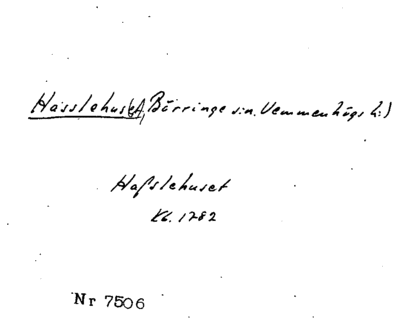 Hasslehus(et), Börringe s:n. Vemmenhögs h:d
Hasslehuset
Kb. 1782
Nr 7506